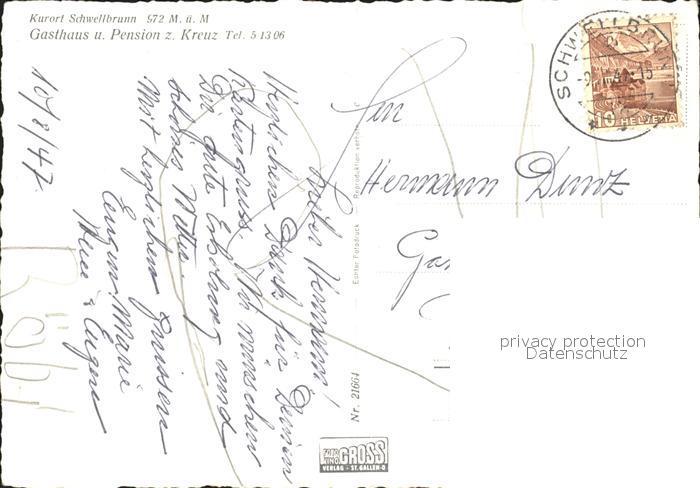 Kurort Schwellbrunn 972 M. ü. M
Gasthaus u. Pension z. Kreuz Tel. 5 13 06
10/8/47
Lieber Hermann!
Herzlichen Dank für Deinen
Kartengruss. Wir wünschen
Dir gute Erholung und
schönes Wetter.
Mit herzlichen Grüssen
Eugen Marie
Heidi & Eugen
Echter Fotodruck - Reproduktion verboten
Nr. 21664
FOTO UND GROSS
VERLAG - ST. GALLEN-O
SCHWELLBRUNN
10 HELVETIA
Herrn
Hermann Dunz
privacy protection
Datenschutz